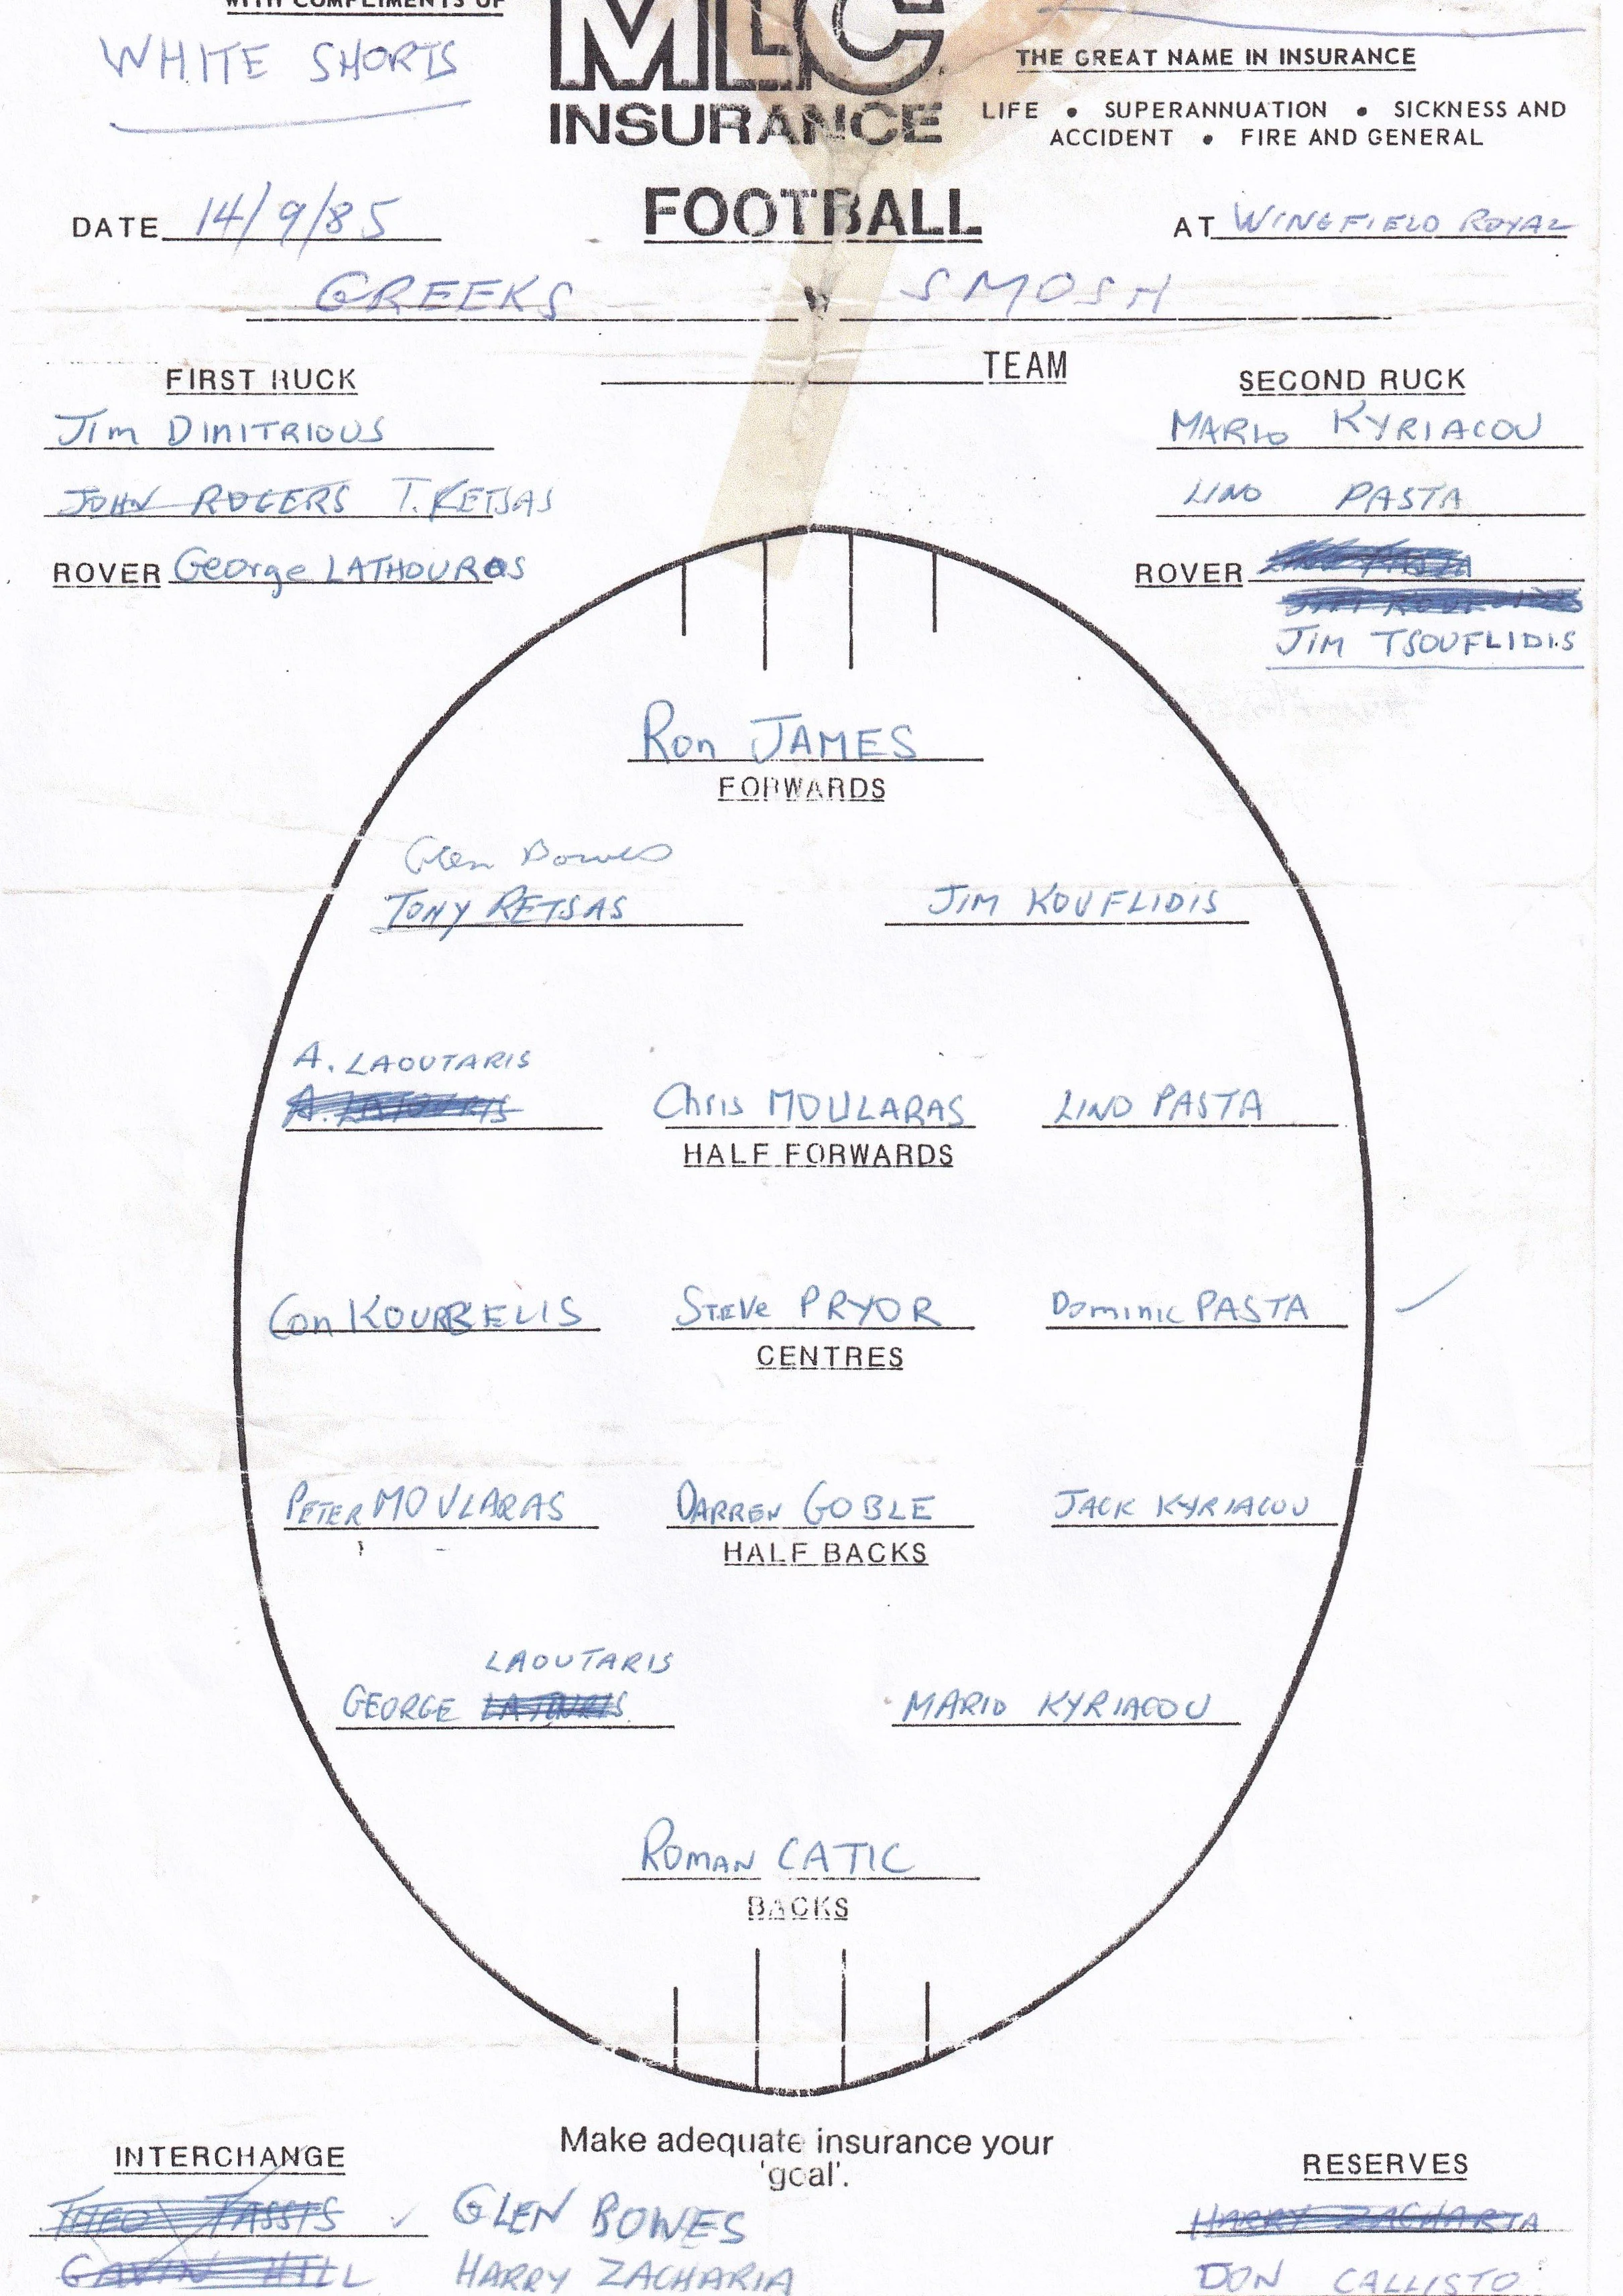 WITH COMPLIMENTS OF
WHITE SHORTS
MLC
INSURANCE
THE GREAT NAME IN INSURANCE
LIFE • SUPERANNUATION • SICKNESS AND
ACCIDENT • FIRE AND GENERAL
DATE 14/9/85
FOOTBALL
AT WINGFIELD ROYAL
GREEKS v SMOSH
TEAM
FIRST RUCK
Jim DIMITRIOUS
JOHN ROGERS T. RETSAS
ROVER George LATHOURAS
SECOND RUCK
MARIO KYRIACOU
LINO PASTA
ROVER
JIM TSOUFLIDIS
Ron JAMES
FORWARDS
Glen Bowes
TONY RETSAS JIM KOUFLIDIS
A. LAOUTARIS
Chris MOULARAS LINO PASTA
HALF FORWARDS
Con KOURBELIS STEVE PRYOR Dominic PASTA
CENTRES
PETER MOULARAS DARREN GOBLE JACK KYRIACOU
HALF BACKS
LAOUTARIS
GEORGE MARIO KYRIACOU
ROMAN CATIC
BACKS
Make adequate insurance your
'goal'.
INTERCHANGE
THEO TASSIS GLEN BOWES
GAVIN HILL HARRY ZACHARIA
RESERVES
HARRY ZACHARIA
DON CALLISTO